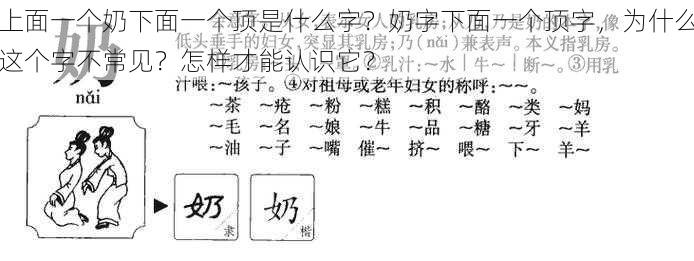 上面一个奶下面一个顶是什么字？奶字下面一个顶字，为什么
低头垂手的妇女，突显其乳房；乃（nǎi）兼表声。本义指乳房。
这个字不常见？怎样才能认识它？
乳汁：～水｜牛～｜断～。③用乳
奶
nǎi
汁喂：～孩子。④对祖母或老年妇女的称呼：～～。
～茶 ～疮 ～粉 ～糕 ～积 ～酪 ～类 ～妈
～毛 ～名 ～娘 ～牛 ～品 ～糖 ～牙 ～羊
～油 ～子 ～嘴 催～ 挤～ 喂～ 下～ 羊～
奶 隶
奶 楷